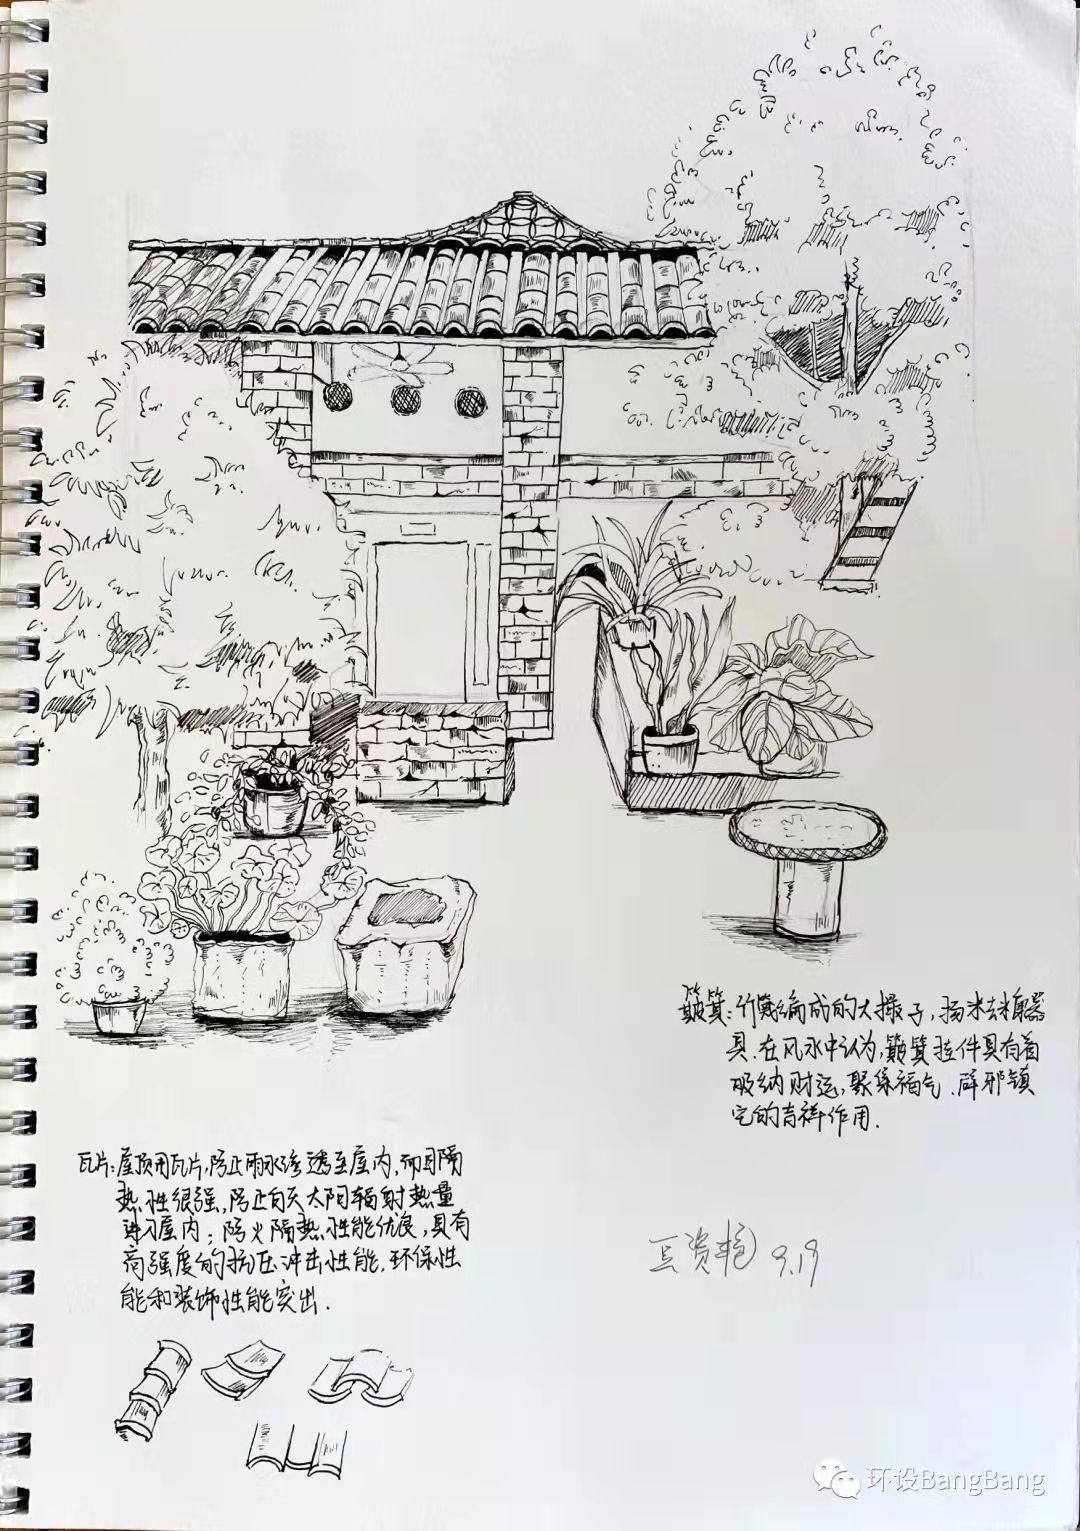 簸箕:竹篾编成的大撮子,扬米去糠器
具.在风水中认为,簸箕挂件具有着
吸纳财运,聚集福气.辟邪镇
宅的吉祥作用.
瓦片:屋顶用瓦片,防止雨水渗透至屋内,而且隔
热性很强,防止白天太阳辐射热量
进入屋内;防火隔热性能优良,具有
高强度的抗压冲击性能,环保性
能和装饰性能突出.
9.19
环设BangBang